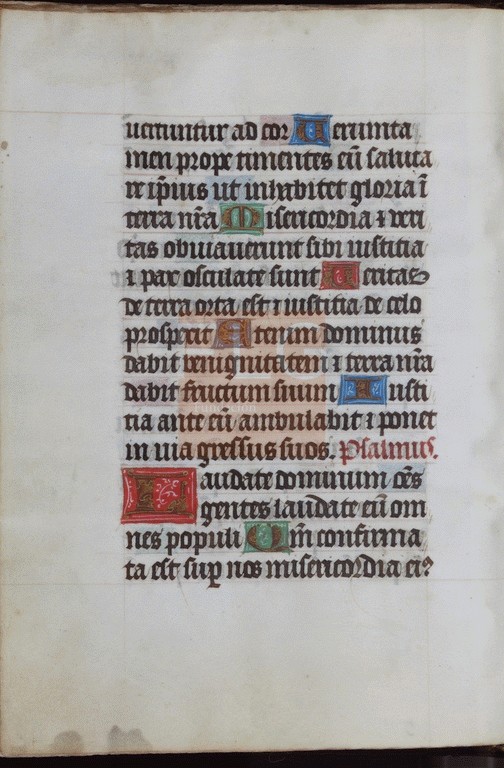 uertuntur ad cor Uerumta
men prope timentes eū saluta
re ip̄ius ut inhabitet gloria ī
terra nr̄a Misericordia ⁊ veri
tas obuiauerunt sibi iusticia
⁊ pax osculate sunt Ueritas
de terra orta est ⁊ iustitia de celo
prosperit Etenim dominus
dabit benignitatem ⁊ terra nr̄a
dabit fructum suum Iusti
tia ante eū ambulabit ⁊ ponet
in uia gressus suos. Psalmus.
Laudate dominum om̄s
gentes laudate eū om
nes populi Qm̄ confirma
ta est sup̱ nos misericordia ei⁹